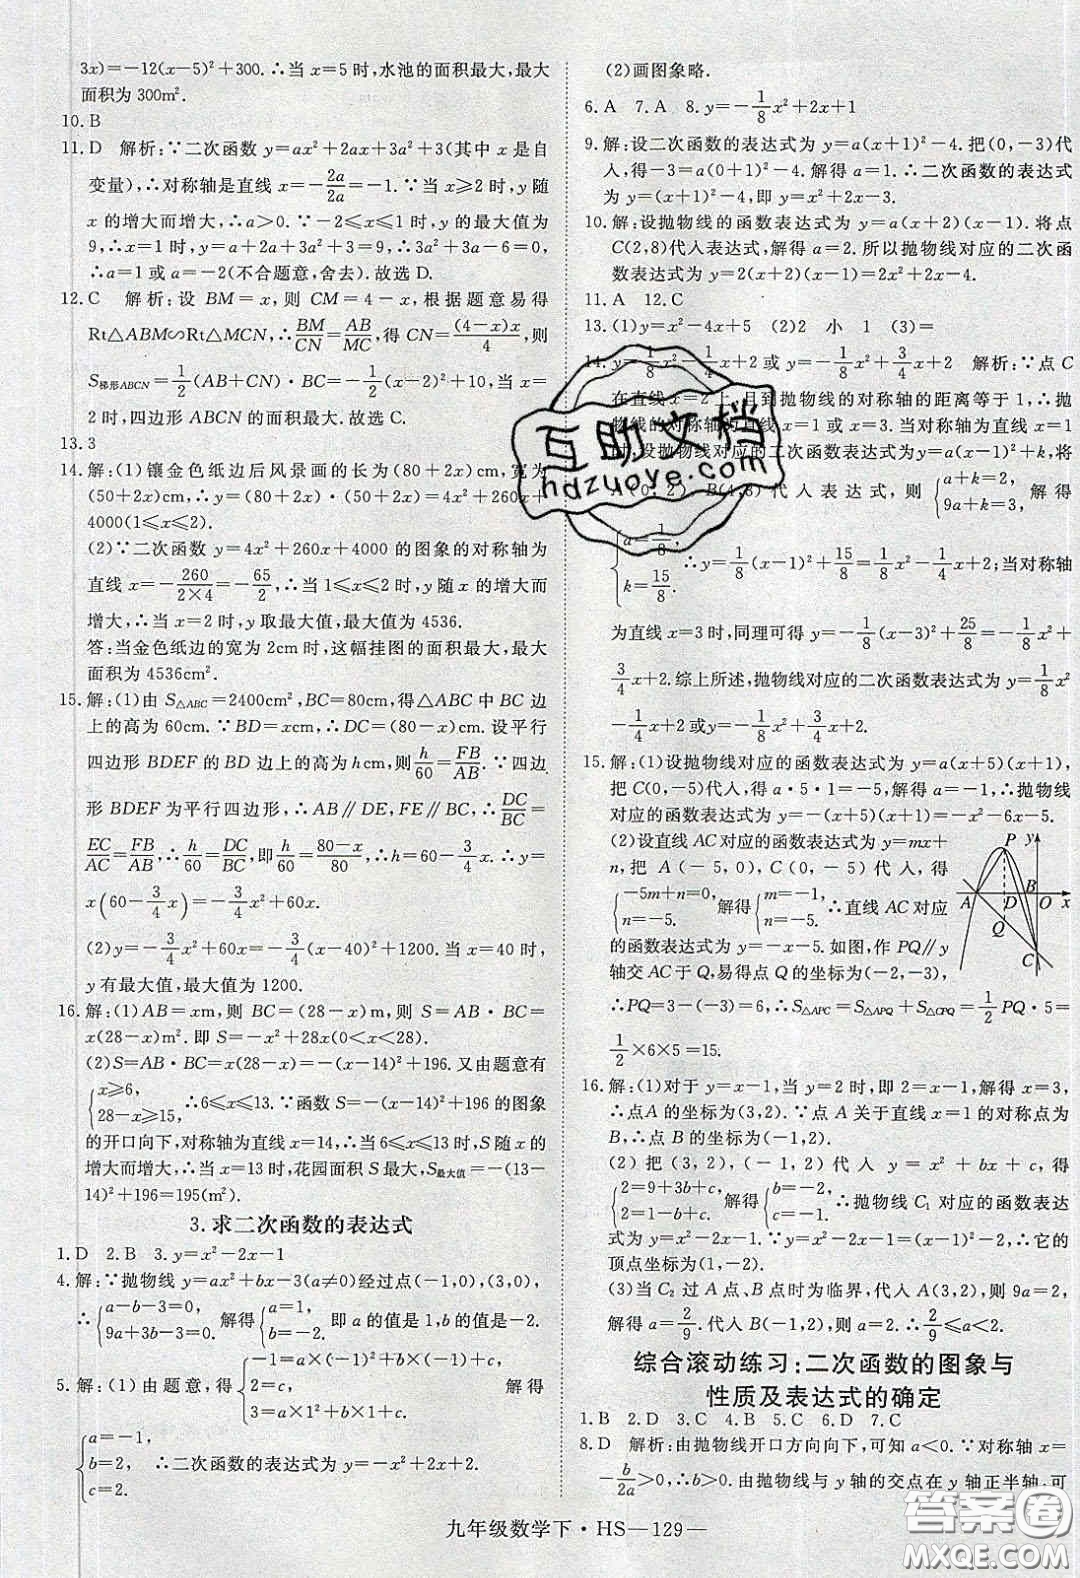 3x)=-12(x-5)²+300.∴当 x=5 时,水池的面积最大,最大
面积为 300m².
10. B
11. D 解析:∵二次函数 y=ax²+2ax+3a²+3(其中 x 是自
变量),∴对称轴是直线 x=-2a/2a=-1.∵当 x≥2 时,y 随
x 的增大而增大,∴a>0.∵-2≤x≤1 时,y 的最大值为
9,∴x=1 时,y=a+2a+3a²+3=9,∴3a²+3a-6=0,
∴a=1 或 a=-2(不合题意,舍去).故选 D.
12. C 解析:设 BM=x,则 CM=4-x,根据题意易得
Rt△ABM∽Rt△MCN,∴BM/CN=AB/MC,得 CN=(4-x)x/4,则
S梯形ABCN=1/2(AB+CN)·BC=-1/2(x-2)²+10,当 x=
2 时,四边形 ABCN 的面积最大.故选 C.
13. 3
14. 解:(1)镶金色纸边后风景画的长为(80+2x)cm,宽为
(50+2x)cm,∴y=(80+2x)·(50+2x)=4x²+260x+
4000(1≤x≤2).
(2)∵二次函数 y=4x²+260x+4000 的图象的对称轴为
直线 x=-260/2×4=-65/2,∴当 1≤x≤2 时,y 随 x 的增大而
增大,∴当 x=2 时,y 取最大值,最大值为 4536.
答:当金色纸边的宽为 2cm 时,这幅挂图的面积最大,最大
面积为 4536cm².
15. 解:(1)由 S△ABC=2400cm²,BC=80cm,得△ABC 中 BC 边
上的高为 60cm.∵BD=xcm,∴DC=(80-x)cm.设平行
四边形 BDEF 的 BD 边上的高为 hcm,则 h/60=FB/AB.∵四边
形 BDEF 为平行四边形,∴AB∥DE,FE∥BC,∴DC/BC=
EC/AC=FB/AB,∴h/60=DC/BC,即 h/60=80-x/80.∴h=60-3/4x.∴y=
x(60-3/4x)=-3/4x²+60x.
(2)y=-3/4x²+60x=-3/4(x-40)²+1200.当 x=40 时,
y 有最大值,最大值为 1200.
16. 解:(1)AB=xm,则 BC=(28-x)m,所以 S=AB·BC=
x(28-x)m².即 S=-x²+28x(0<x<28).
(2)S=AB·BC=x(28-x)=-(x-14)²+196.又由题意有
{x≥6, 28-x≥15, ∴6≤x≤13.∵函数 S=-(x-14)²+196 的图象
的开口向下,对称轴为直线 x=14,∴当 6≤x≤13 时,S 随 x 的
增大而增大,∴当 x=13 时,花园面积 S 最大,S最大值=-(13-
14)²+196=195(m²).
3. 求二次函数的表达式
1. D 2. B 3. y=x²-2x-1
4. 解:∵抛物线 y=ax²+bx-3(a≠0)经过点(-1,0),(3,0),
∴{a-b-3=0, 9a+3b-3=0, 解得{a=1, b=-2. 即 a 的值是 1,b 的值是-2.
5. 解:(1)由题意,得{-1=a×(-1)²+b×(-1)+c, 2=c, 3=a×1²+b×1+c, 解得
{a=-1, b=2, c=2. ∴二次函数的表达式为 y=-x²+2x+2.
(2)画图象略.
6. A 7. A 8. y=-1/8x²+2x+1
9. 解:设二次函数的表达式为 y=a(x+1)²-4.把(0,-3)代
人,得-3=a(0+1)²-4.解得 a=1.∴二次函数的表达式
为 y=(x+1)²-4,即 y=x²+2x-3.
10. 解:设抛物线的函数表达式为 y=a(x+2)(x-1).将点
C(2,8)代入表达式,解得 a=2.所以抛物线对应的二次函
数表达式为 y=2(x+2)(x-1)=2x²+2x-4.
11. A 12. C
13. (1)y=x²-4x+5 (2)2 小 1 (3)=
14. y=1/8x²-1/4x+2 或 y=-1/8x²+3/4x+2 解析:∵点 C
在直线 x=2 上,且到抛物线的对称轴的距离等于 1,∴抛
物线的对称轴为直线 x=1 或 x=3.当对称轴为直线 x=1
时,设抛物线对应的二次函数表达式为 y=a(x-1)²+k,将
(0,2),B(4,3)代入表达式,则{a+k=2, 9a+k=3, 解得
{a=1/8, k=15/8. ∴y=1/8(x-1)²+15/8=1/8x²-1/4x+2;当对称轴
为直线 x=3 时,同理可得 y=-1/8(x-3)²+25/8=-1/8x²+
3/4x+2.综上所述,抛物线对应的二次函数表达式为 y=1/8x²
-1/4x+2 或 y=-1/8x²+3/4x+2.
15. 解:(1)设抛物线对应的函数表达式为 y=a(x+5)(x+1),
把 C(0,-5)代入,得 a·5·1=-5,解得 a=-1,∴抛物线
对应的函数表达式为 y=-(x+5)(x+1)=-x²-6x-5.
(2)设直线 AC 对应的函数表达式为 y=mx+
n,把 A(-5,0),C(0,-5)代入,得
{-5m+n=0, n=-5. 解得{m=-1, n=-5. ∴直线 AC 对应
的函数表达式为 y=-x-5.如图,作 PQ∥y
轴交 AC 于 Q,易得点 Q 的坐标为(-2,-3),
∴PQ=3-(-3)=6,∴S△APC=S△APQ+S△CPQ=1/2PQ·5=
1/2×6×5=15.
y P A D B O x Q C
16. 解:(1)对于 y=x-1,当 y=2 时,即 2=x-1,解得 x=3,
∴点 A 的坐标为(3,2).∵点 A 关于直线 x=1 的对称点为
B,∴点 B 的坐标为(-1,2).
(2)把(3,2),(-1,2)代入 y=x²+bx+c,得
{2=9+3b+c, 2=1-b+c. 解得{b=-2, c=-1. ∴抛物线 C₁ 对应的函数表达
式为 y=x²-2x-1.∵y=x²-2x-1=(x-1)²-2,∴它的
顶点坐标为(1,-2).
(3)当 C₂ 过 A 点、B 点时为临界,代入 A(3,2),则 9a=2,
解得 a=2/9.代入 B(-1,2),解得 a=2.∴2/9≤a<2.
综合滚动练习:二次函数的图象与
性质及表达式的确定
1. B 2. D 3. C 4. B 5. C 6. D 7. C
8. D 解析:由抛物线开口方向向下,可知 a<0.∵对称轴 x=
-b/2a>0,∴b>0.由抛物线与 y 轴的交点在 y 轴正半轴,可
九年级数学下·HS—129—
互助文档
hdzuoye.com
答案圈
MXQE.COM